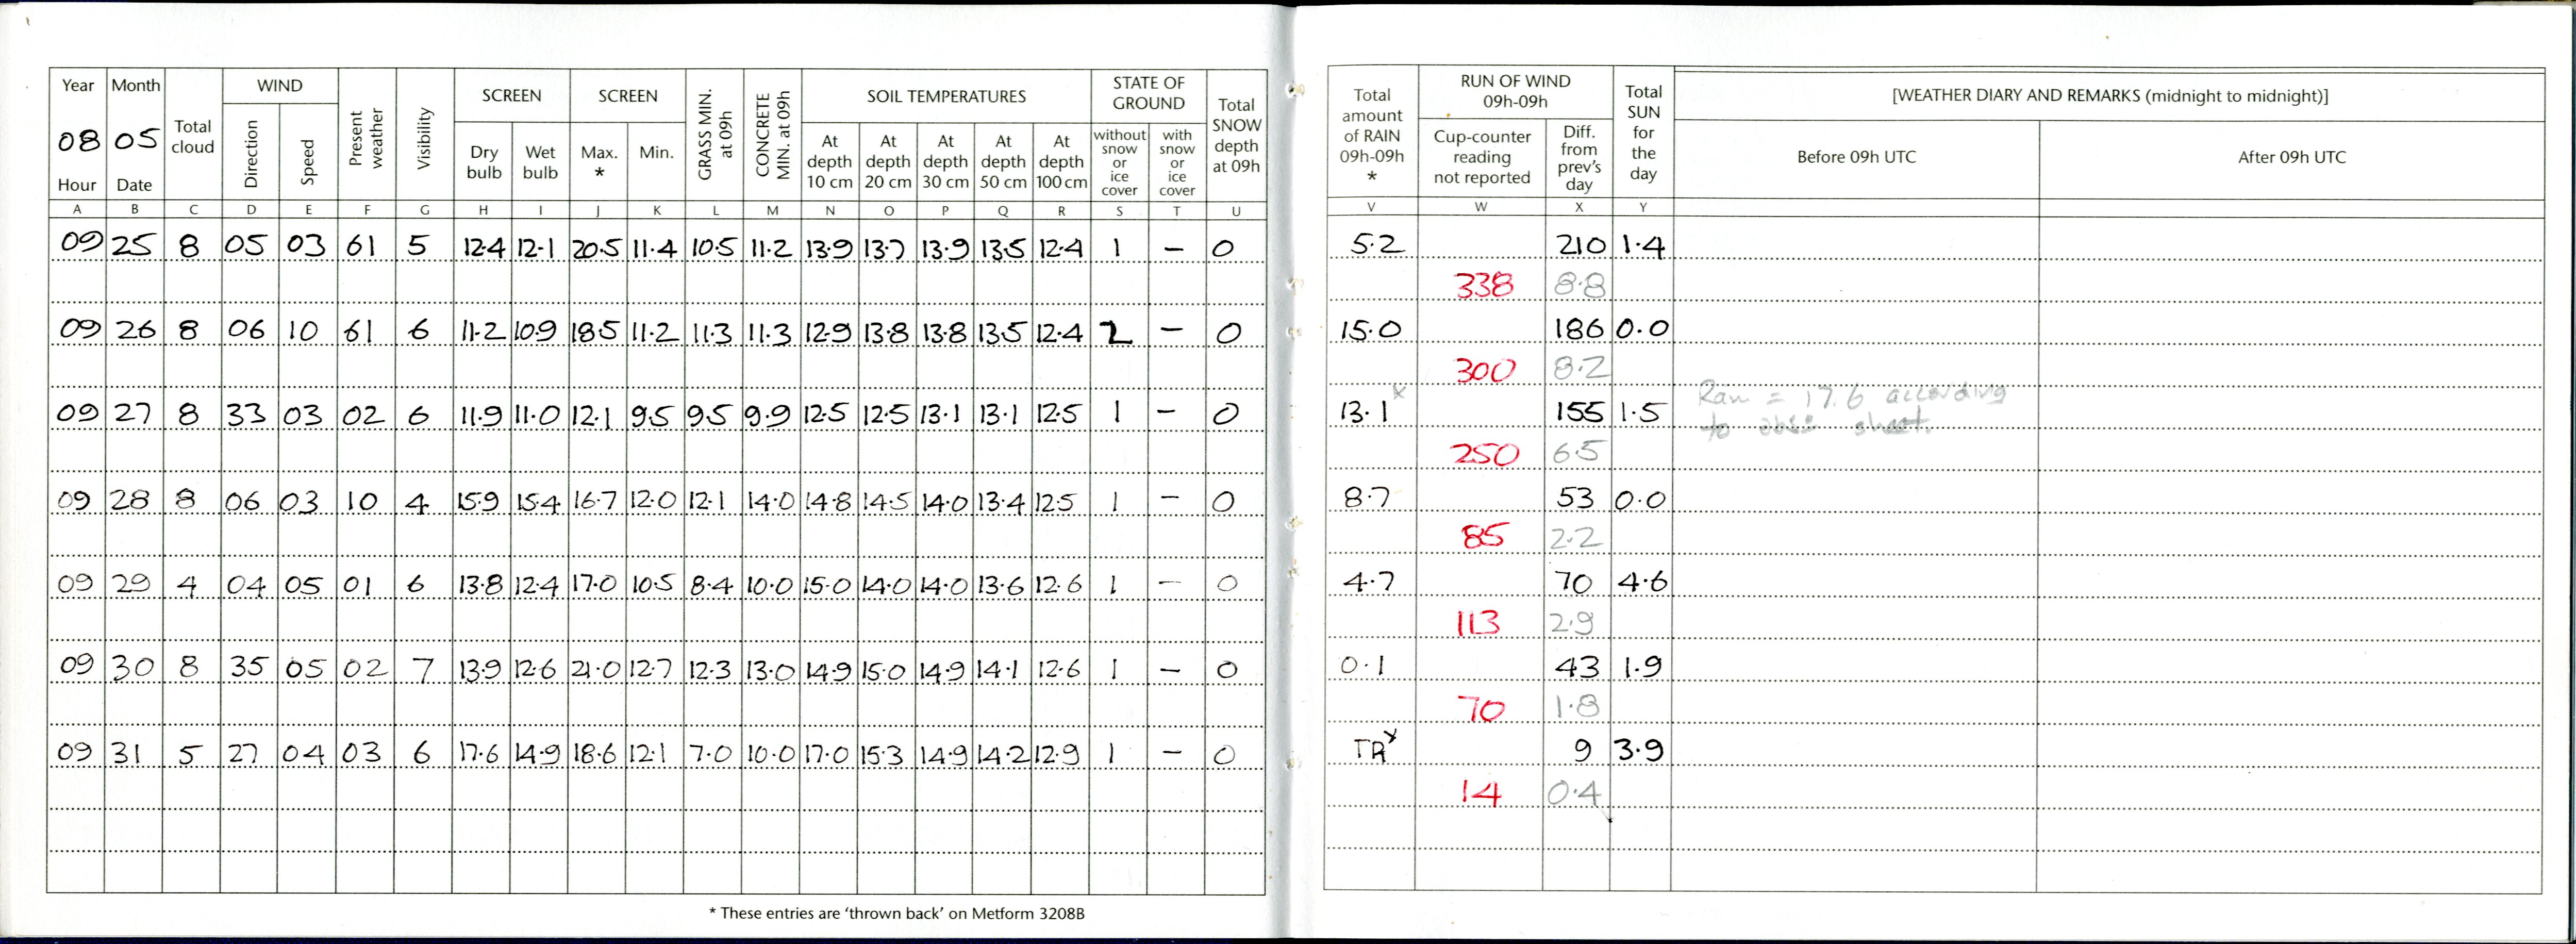 Year Month Total cloud WIND Present weather Visibility SCREEN SCREEN GRASS MIN. at 09h CONCRETE MIN. at 09h SOIL TEMPERATURES STATE OF GROUND Total SNOW depth at 09h Total amount of RAIN 09h-09h * RUN OF WIND 09h-09h Total SUN for the day [WEATHER DIARY AND REMARKS (midnight to midnight)]
08 05 Direction Speed Dry bulb Wet bulb Max. * Min. At depth 10 cm At depth 20 cm At depth 30 cm At depth 50 cm At depth 100 cm without snow or ice cover with snow or ice cover Cup-counter reading not reported Diff. from prev's day Before 09h UTC After 09h UTC
Hour Date
A B C D E F G H I J K L M N O P Q R S T U V W X Y
09 25 8 05 03 61 5 12.4 12.1 20.5 11.4 10.5 11.2 13.9 13.7 13.9 13.5 12.4 1 – 0 5.2 210 1.4
338 8.8
09 26 8 06 10 61 6 11.2 10.9 18.5 11.2 11.3 11.3 12.9 13.8 13.8 13.5 12.4 2 – 0 15.0 186 0.0
300 8.2
09 27 8 33 03 02 6 11.9 11.0 12.1 9.5 9.5 9.9 12.5 12.5 13.1 13.1 12.5 1 – 0 13.1x 155 1.5 Rain = 17.6 according
to obs sheet.
250 6.5
09 28 8 06 03 10 4 15.9 15.4 16.7 12.0 12.1 14.0 14.8 14.5 14.0 13.4 12.5 1 – 0 8.7 53 0.0
85 2.2
09 29 4 04 05 01 6 13.8 12.4 17.0 10.5 8.4 10.0 15.0 14.0 14.0 13.6 12.6 1 – 0 4.7 70 4.6
113 2.9
09 30 8 35 05 02 7 13.9 12.6 21.0 12.7 12.3 13.0 14.9 15.0 14.9 14.1 12.6 1 – 0 0.1 43 1.9
70 1.8
09 31 5 27 04 03 6 17.6 14.9 18.6 12.1 7.0 10.0 17.0 15.3 14.9 14.2 12.9 1 – 0 TRx 9 3.9
14 0.4
* These entries are 'thrown back' on Metform 3208B